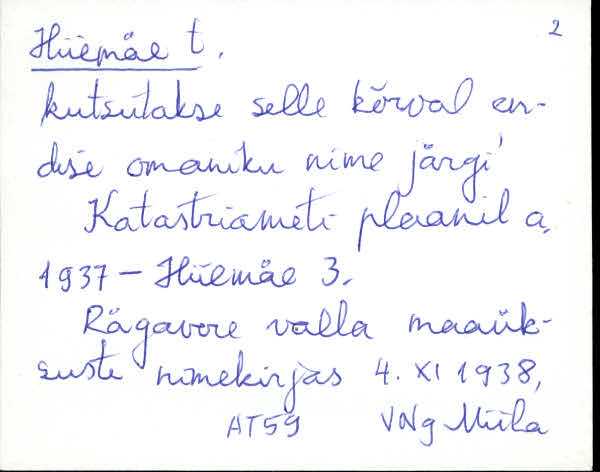 2
Hiiemäe t.
kutsutakse selle kõrval en-
dise omaniku nime järgi
Katastriameti plaanil a.
1937 – Hiiemäe 3.
Rägavere valla maaük-
suste nimekirjas 4. XI 1938,
AT59 VNg Miila